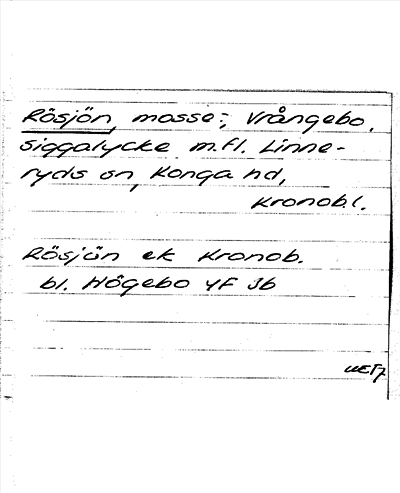 Rösjön, mosse:; Vrångebo,
Siggalycke m.fl. Linne-
ryds sn, Konga hd,
Kronob.l.
Rösjön ek Kronob.
bl. Högebo 4F Jb